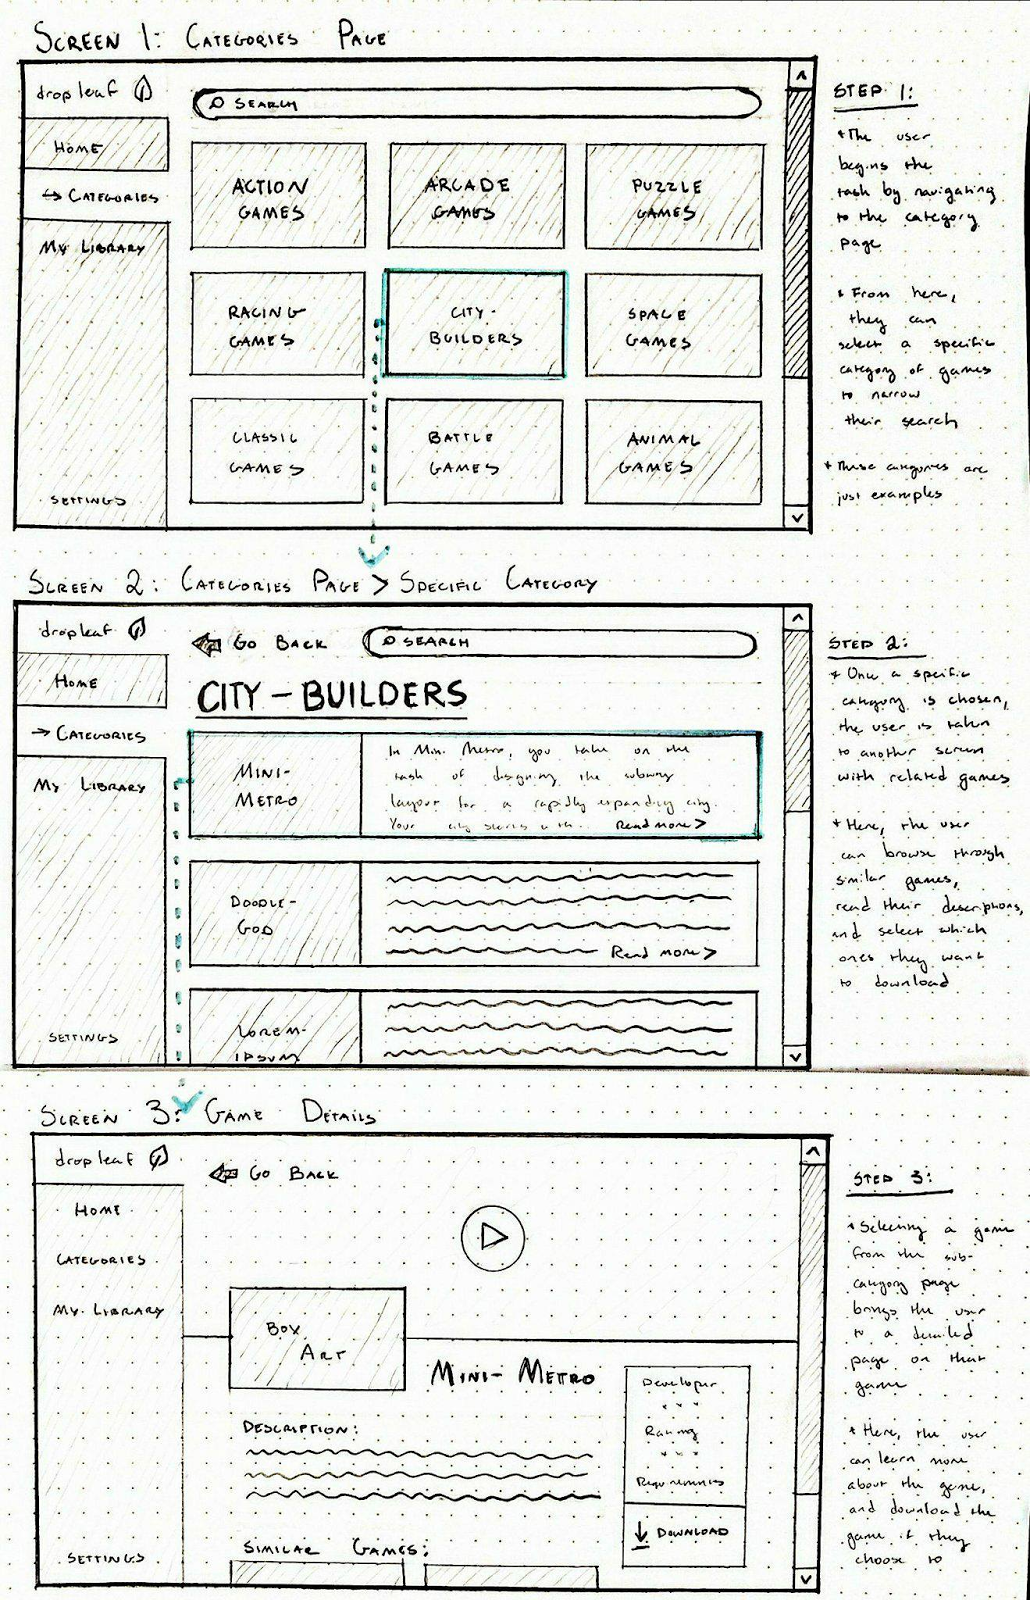 SCREEN 1: CATEGORIES PAGE
drop leaf
HOME
→ CATEGORIES
MY LIBRARY
SETTINGS
SEARCH
ACTION
GAMES
ARCADE
GAMES
PUZZLE
GAMES
RACING
GAMES
CITY-
BUILDERS
SPACE
GAMES
CLASSIC
GAMES
BATTLE
GAMES
ANIMAL
GAMES
STEP 1:
* The user
begins the
task by navigating
to the category
page
* From here,
they can
select a specific
category of games
to narrow
their search
* These categories are
just examples
SCREEN 2: CATEGORIES PAGE > SPECIFIC CATEGORY
drop leaf
HOME
→ CATEGORIES
MY LIBRARY
SETTINGS
GO BACK
SEARCH
CITY-BUILDERS
MINI-
METRO
In Mini Metro, you take on the
task of designing the subway
layout for a rapidly expanding city.
Your city starts with... Read more >
DOODLE-
GOD
Read more >
LOREM-
IPSUM
STEP 2:
* Once a specific
category is chosen,
the user is taken
to another screen
with related games
* Here, the user
can browse through
similar games,
read their descriptions,
and select which
ones they want
to download
SCREEN 3: GAME DETAILS
drop leaf
HOME
CATEGORIES
MY LIBRARY
SETTINGS
GO BACK
BOX
ART
MINI-METRO
DESCRIPTION:
SIMILAR GAMES:
Developer
Rating
Requirements
DOWNLOAD
STEP 3:
* Selecting a game
from the sub-
category page
brings the user
to a detailed
page on that
game
* Here, the user
can learn more
about the game,
and download the
game if they
choose to